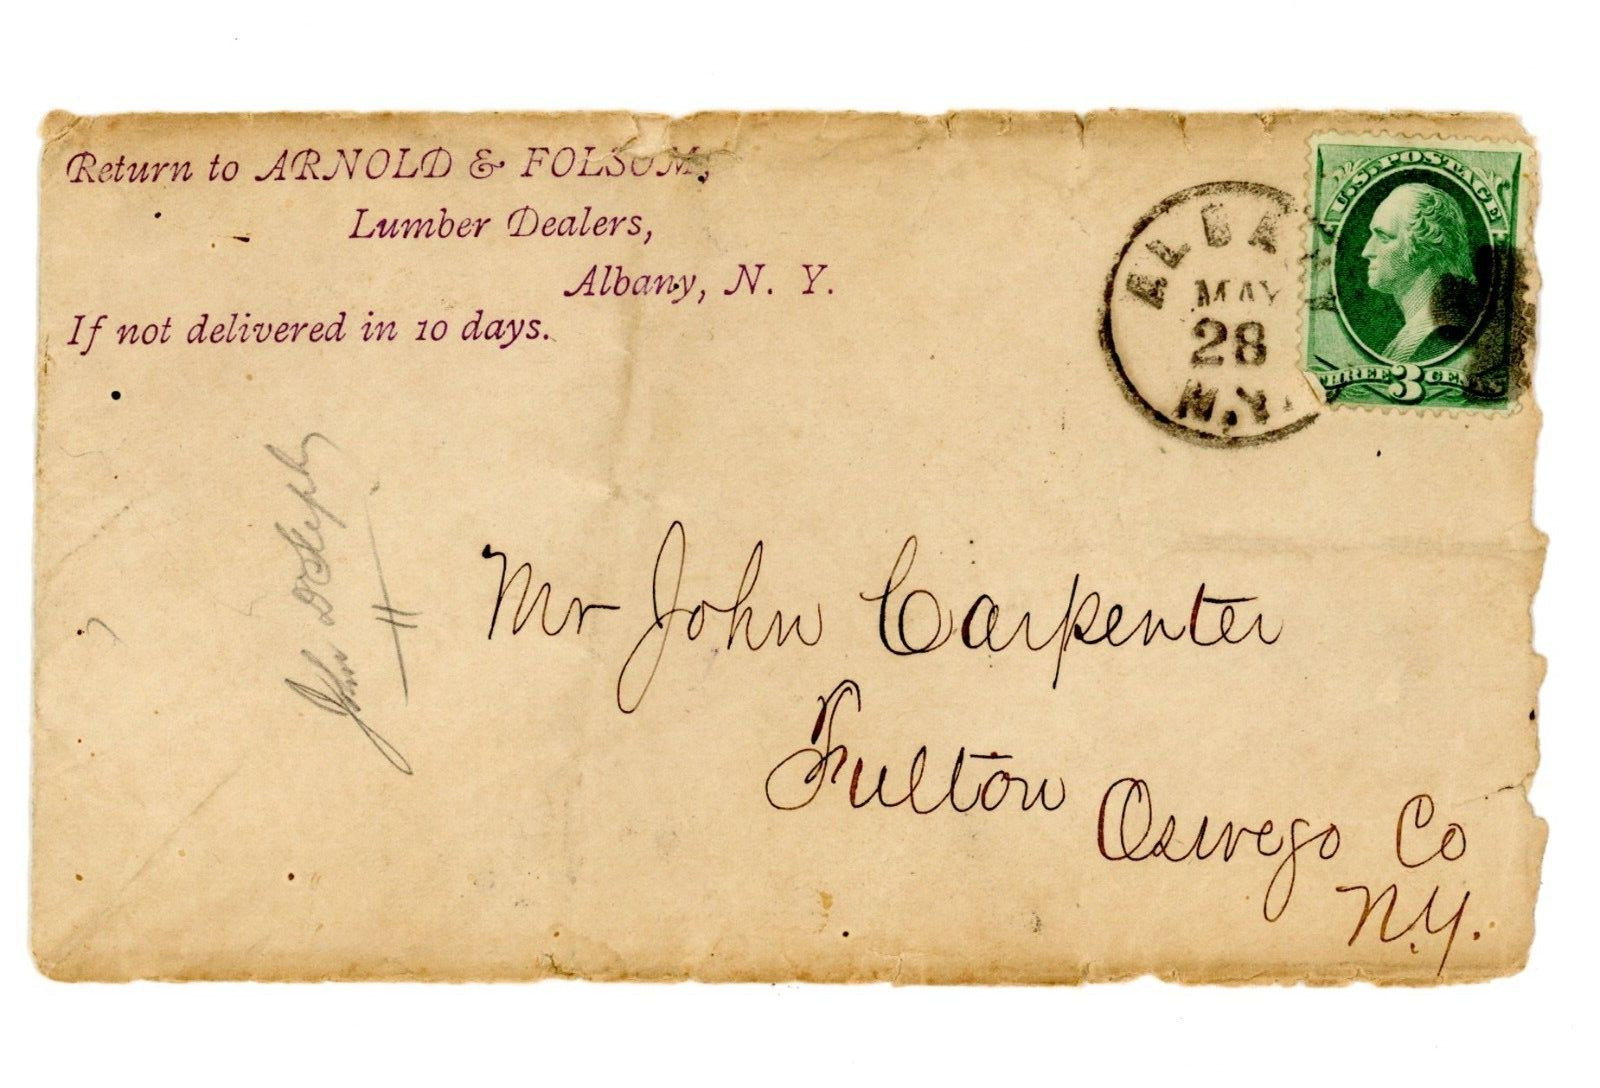 Return to ARNOLD & FOLSOM,
Lumber Dealers,
Albany, N. Y.
If not delivered in 10 days.
ALBANY
MAY
28
N.Y.
U.S. POSTAGE
THREE 3 CENTS
John
Mr John Carpenter
Fulton
Oswego Co
N.Y.